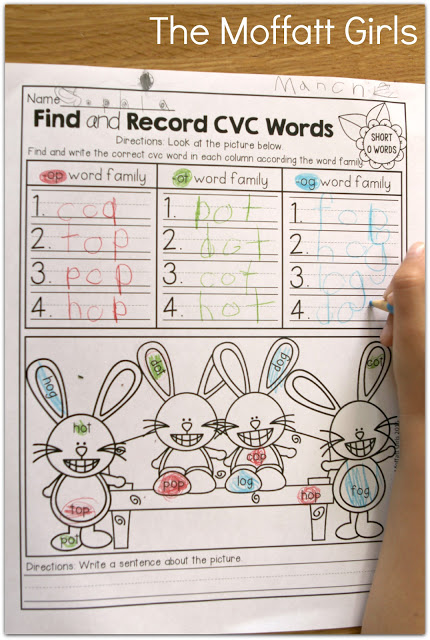 The Moffatt Girls
Name Sophia
Find and Record CVC Words
SHORT
O WORDS
Directions: Look at the picture below.
Find and write the correct cvc word in each column according the word family
-op word family -ot word family -og word family
1. cop 1. pot 1. fog
2. top 2. dot 2. hog
3. pop 3. cot 3. log
4. hop 4. hot 4. dog
hog dot dog cot
hot
cop
top pop log hop fog
pot
Directions: Write a sentence about the picture.